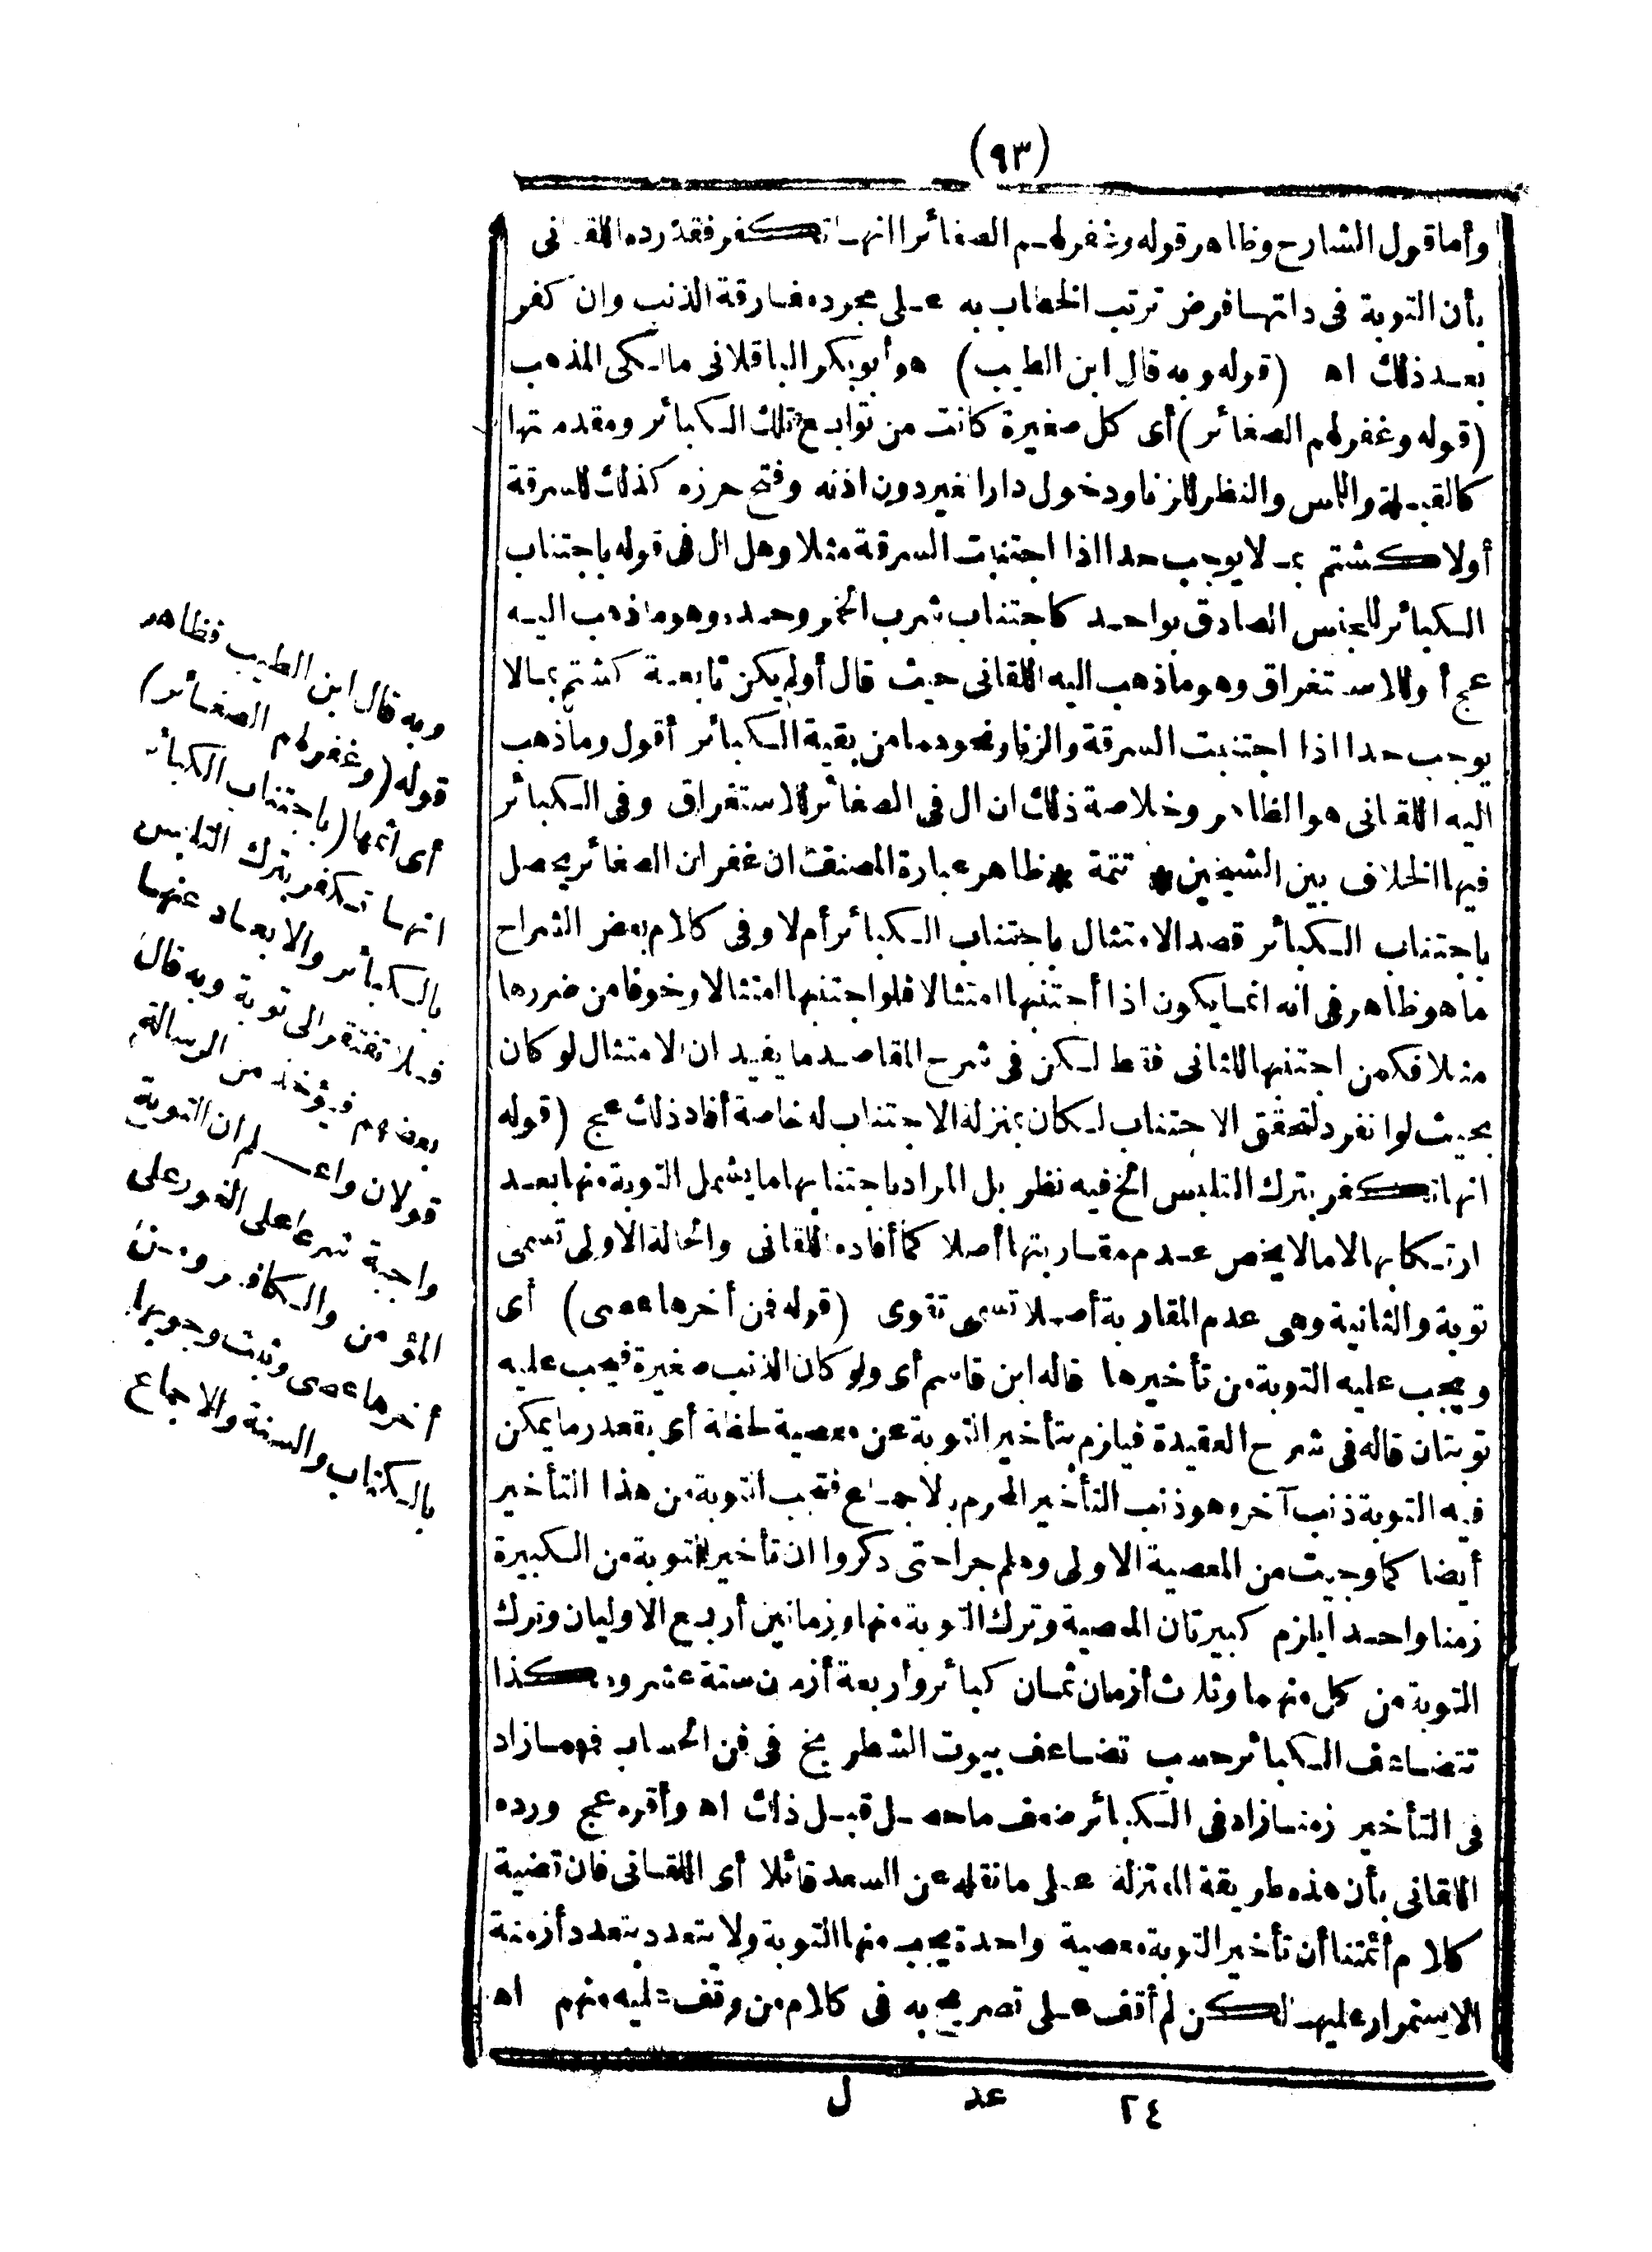 (٩٣)
وأما قول الشارح وظاهر قوله وغفر لهم الصغائر انها تكفر فقد رده اللقانى
بأن التوبة فى ذاتها فرض ترتب الخطاب به على مجرد مفارقة الذنب وان كفر
بعد ذلك اه (قوله وبه قال ابن الطيب) هو أبو بكر الباقلانى مالكى المذهب
(قوله وغفر لهم الصغائر) أى كل صغيرة كانت من توابع تلك الكبائر ومقدمتها
كالقبلة واللمس والنظر للزنا ودخول دار الغير دون اذنه وفتح حرزه كذلك للسرقة
أو لا كشتم بما لا يوجب حدا اذا اجتنبت السرقة مثلا وهل ال فى قوله باجتناب
الكبائر للجنس الصادق بواحد كاجتناب شرب الخمر وحده وهو ما ذهب اليه
عج أو للاستغراق وهو ما ذهب اليه اللقانى حيث قال أولم يكن تابعة كشتم بما لا
يوجب حدا اذا اجتنبت السرقة والزنا ونحوهما من بقية الكبائر أقول وما ذهب
اليه اللقانى هو الظاهر وخلاصة ذلك ان ال فى الصغائر للاستغراق وفى الكبائر
فيها الخلاف بين الشيخين * تتمة * ظاهر عبارة المصنف ان غفران الصغائر يحصل
باجتناب الكبائر قصد الامتثال باجتناب الكبائر أم لا وفى كلام بعض الشراح
ما هو ظاهر فى انه انما يكون اذا أجتنبها امتثالا فلو اجتنبها امتثالا وخوفا من ضررها
مثلا فكمن اجتنبها للثانى فقط لكن فى شرح المقاصد ما يفيد ان الامتثال لو كان
بحيث لو انفرد لتحقق الاجتناب لكان بمنزلة الاجتناب له خاصة أفاد ذلك عج (قوله
انها تكفر بترك التلبس الخ فيه نظر بل المراد باجتنابها ما يشمل التوبة منها بعد
ارتكابها لا ما لا يخص عدم مقاربتها أصلا كما أفاده اللقانى والحالة الاولى تسمى
توبة والثانية وهى عدم المقاربة أصلا تسمى تقوى (قوله فمن أخرها عصى) أى
ويجب عليه التوبة من تأخيرها قاله ابن قاسم أى ولو كان الذنب صغيرة فيجب عليه
توبتان قاله فى شرح العقيدة فيلزم بتأخير التوبة عن معصية لحظة أى بقدر ما يمكن
فيه التوبة ذنب آخر وهو ذنب التأخير المحرم بالاجماع فتجب التوبة من هذا التأخير
أيضا كما وجبت من المعصية الاولى وهلم جرا حتى ذكروا ان تأخير التوبة من الكبيرة
زمنا واحدا يلزم كبيرتان المعصية وترك التوبة منها وزمانين أربع الاوليان وترك
التوبة من كل منهما وثلاث أزمان ثمان كبائر وأربعة أزمن ستة عشر وهكذا
تتضاعف الكبائر حسب تضاعف بيوت الشطرنج فى فن الحساب فمهما زاد
فى التأخير زمنا زاد فى الكبائر ضعف ما حصل قبل ذلك اه وأقره عج ورده
اللقانى بأن هذه طريقة المعتزلة على ما نقله عن السعد قائلا أى اللقانى فان قضية
كلام أئمتنا أن تأخير التوبة معصية واحدة يجب منها التوبة ولا يتعدد بتعدد أزمنة
الاستمرار عليها لكن لم أقف على تصريح به فى كلام من وقفت عليه منهم اه
٢٤ عد ل
وبه قال ابن الطيب فظاهر
قوله (وغفر لهم الصغائر)
أى اثمها (باجتناب الكبائر
انها تكفر بترك التلبس
بالكبائر والابعاد عنها
فلا تفتقر الى توبة وبه قال
بعضهم فيؤخذ من الرسالة
قولان واعلم ان التوبة
واجبة شرعا على الفور على
المؤمن والكافر ومن
أخرها عصى وثبت وجوبها
بالكتاب والسنة والاجماع